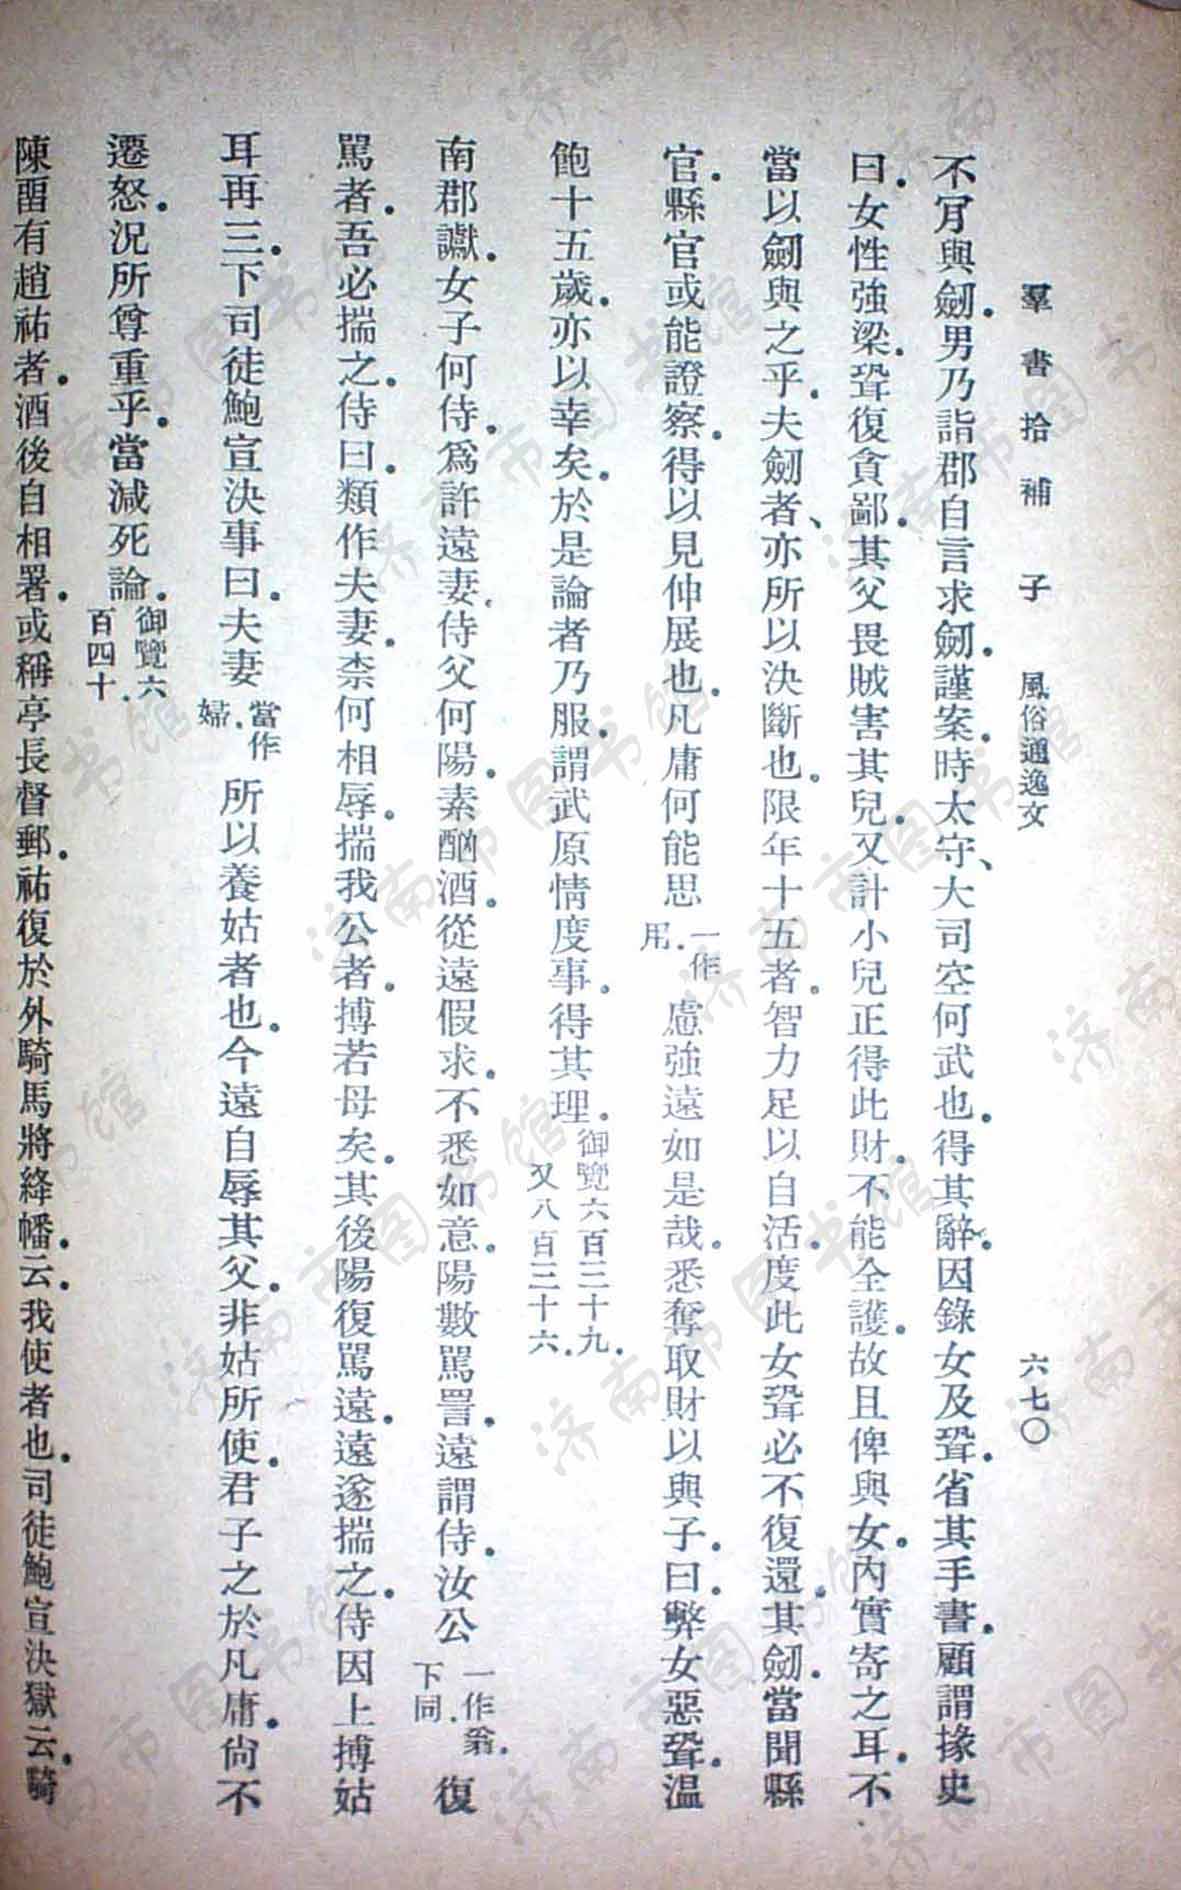 羣書拾補 子 風俗通逸文 六七〇
不肎與劒。男乃詣郡自言求劒。謹案。時太守、大司空何武也。得其辭。因錄女及聟。省其手書。顧謂掾史
曰。女性強梁。聟復貪鄙。其父畏賊害其兒。又計小兒正得此財。不能全護。故且俾與女。內實寄之耳。不
當以劒與之乎。夫劒者、亦所以決斷也。限年十五者。智力足以自活。度此女聟必不復還其劒。當聞縣
官。縣官或能證察。得以見伸展也。凡庸何能思一作用。慮強遠如是哉。悉奪取財以與子。曰。弊女惡聟。溫
飽十五歲。亦以幸矣。於是論者乃服。謂武原情度事。得其理。御覽六百三十九。又八百三十六。
南郡讞。女子何侍。爲許遠妻。侍父何陽。素酗酒。從遠假求。不悉如意。陽數罵詈。遠謂侍。汝公一作翁。下同。復
罵者。吾必揣之。侍曰。類作夫妻。柰何相辱。揣我公者。搏若母矣。其後陽復罵遠。遠遂揣之。侍因上搏姑
耳再三。下司徒鮑宣決事曰。夫妻當作婦。所以養姑者也。今遠自辱其父。非姑所使。君子之於凡庸。尙不
遷怒。況所尊重乎。當減死論。御覽六百四十。
陳畱有趙祐者。酒後自相署。或稱亭長督郵。祐復於外騎馬將絳幡。云。我使者也。司徒鮑宣決獄云。騎